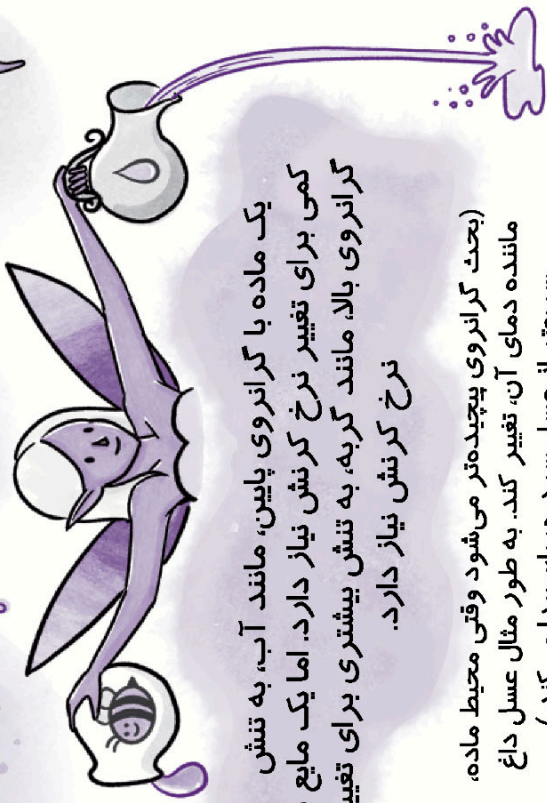 یک ماده با گرانروی پایین، مانند آب، به تنش
کمی برای تغییر نرخ کرنش نیاز دارد. اما یک مایع
گرانروی بالا، مانند گربه، به تنش بیشتری برای
نرخ کرنش نیاز دارد.
(بحث گرانروی پیچیده‌تر می‌شود وقتی محیط ماده،
ماننده دمای آن، تغییر کند. به طور مثال عسل داغ